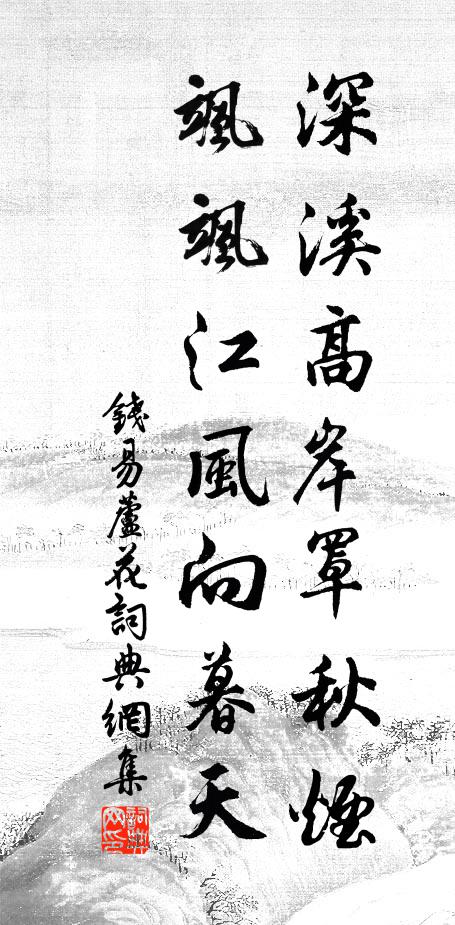 深溪高岸罩秋煙
颯颯江風向暮天
錢易蘆花詞典網集